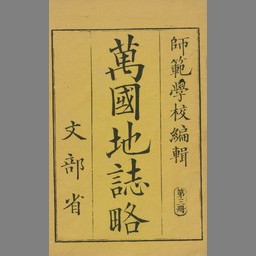 師範學校編輯
第三冊
萬國地誌略
文部省